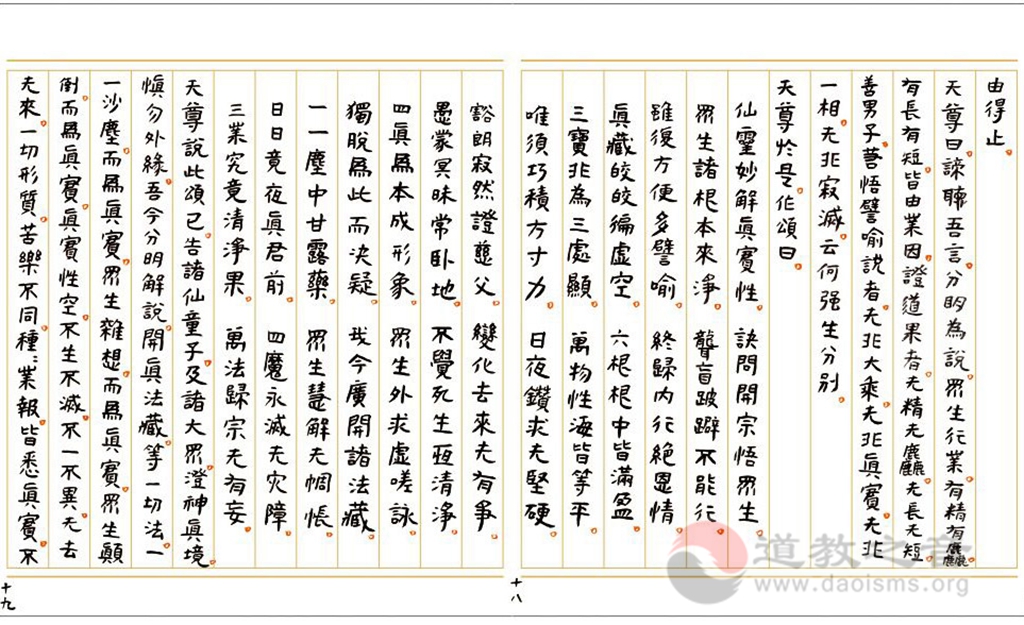 由得止。
天尊曰。諦聽吾言。分明為說。眾生行業。有精有麤。
有長有短。皆由業因。證道果者。无精无麤。无長无短。
善男子。善悟譬喻說者。无非大乘。无非眞實。无非
一相。无非寂滅。云何强生分别。
天尊於是。作頌曰。
仙靈妙解眞實性。訣問開宗悟眾生。
眾生諸根本來淨。聾盲跛躃不能行。
雖復方便多譬喻。終歸內行絕恩情。
眞藏皎皎徧虛空。六根根中皆滿盈。
三寶非為三處顯。萬物性海皆等平。
唯須巧積方寸力。日夜鑽求无堅硬。
十八
豁朗寂然證慈父。變化去來无有爭。
愚蒙冥昧常卧地。不覺死生恆清淨。
四眞爲本成形象。眾生外求虛嗟詠。
獨脫爲此而決疑。我今廣開諸法藏。
一一塵中甘露藥。眾生慧解无惆悵。
日日竟夜眞君前。四魔永滅无灾障。
三業究竟清淨果。萬法歸宗无有妄。
天尊說此頌已。告諸仙童子。及諸大眾。澄神眞境。
愼勿外緣。吾今分明解說。開眞法藏。等一切法。一
一沙塵。而爲眞實。眾生雜想。而爲眞實。眾生顛
倒。而爲眞實。眞實性空。不生不滅。不一不異。无去
无來。一切形質。苦樂不同。種〻業報。皆悉眞實。不
十九
道教之音
www.daoisms.org